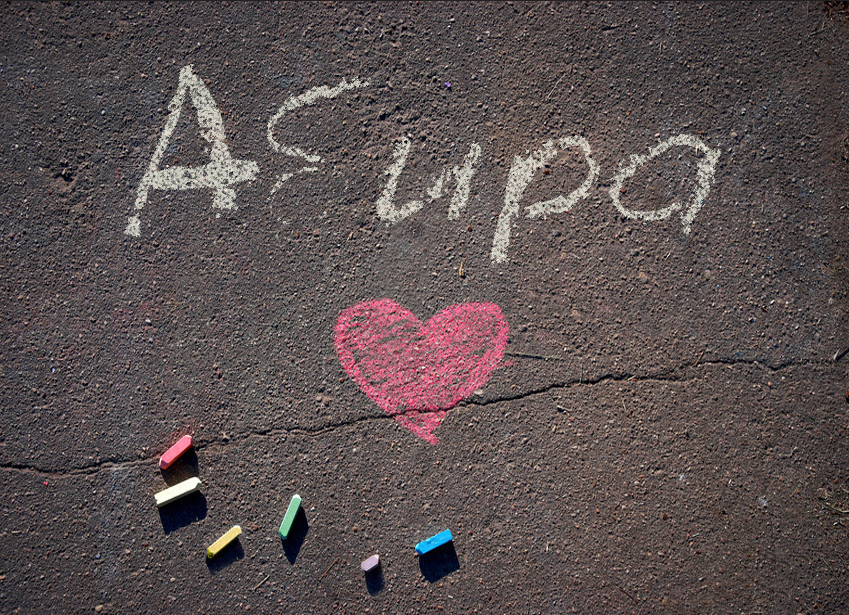 Аҫира